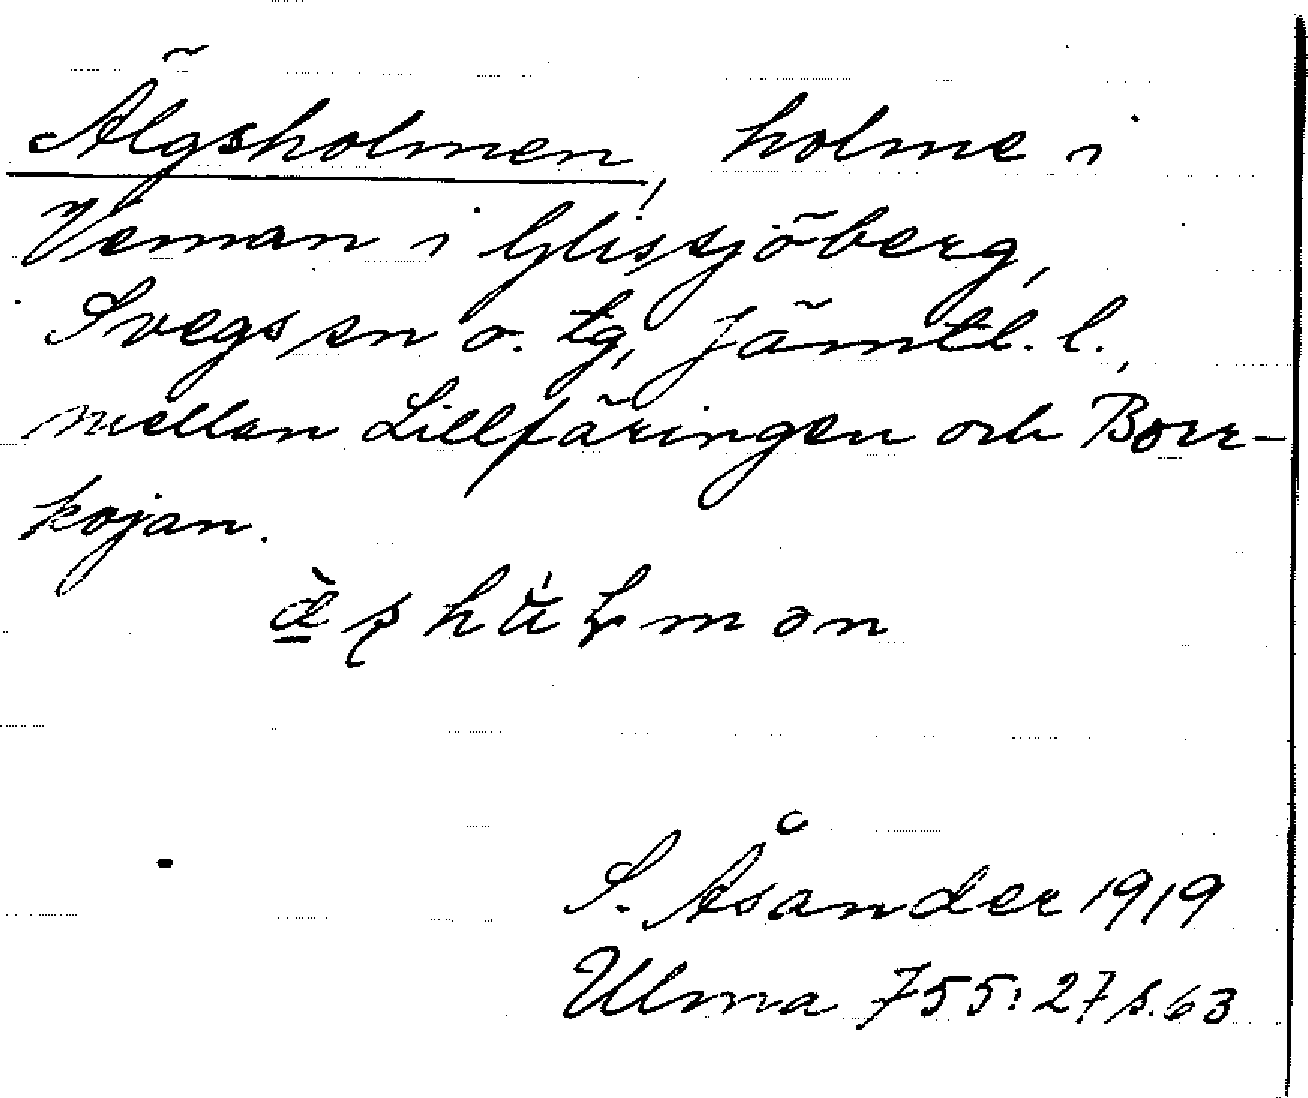 Älgsholmen, holme i
Veman i Glissjöberg,
Svegs sn o. tg, Jämtl. l.,
mellan Lillfäringen och Borr-
kojan.
S. Åsander 1919
Ulma 755:27 s. 63